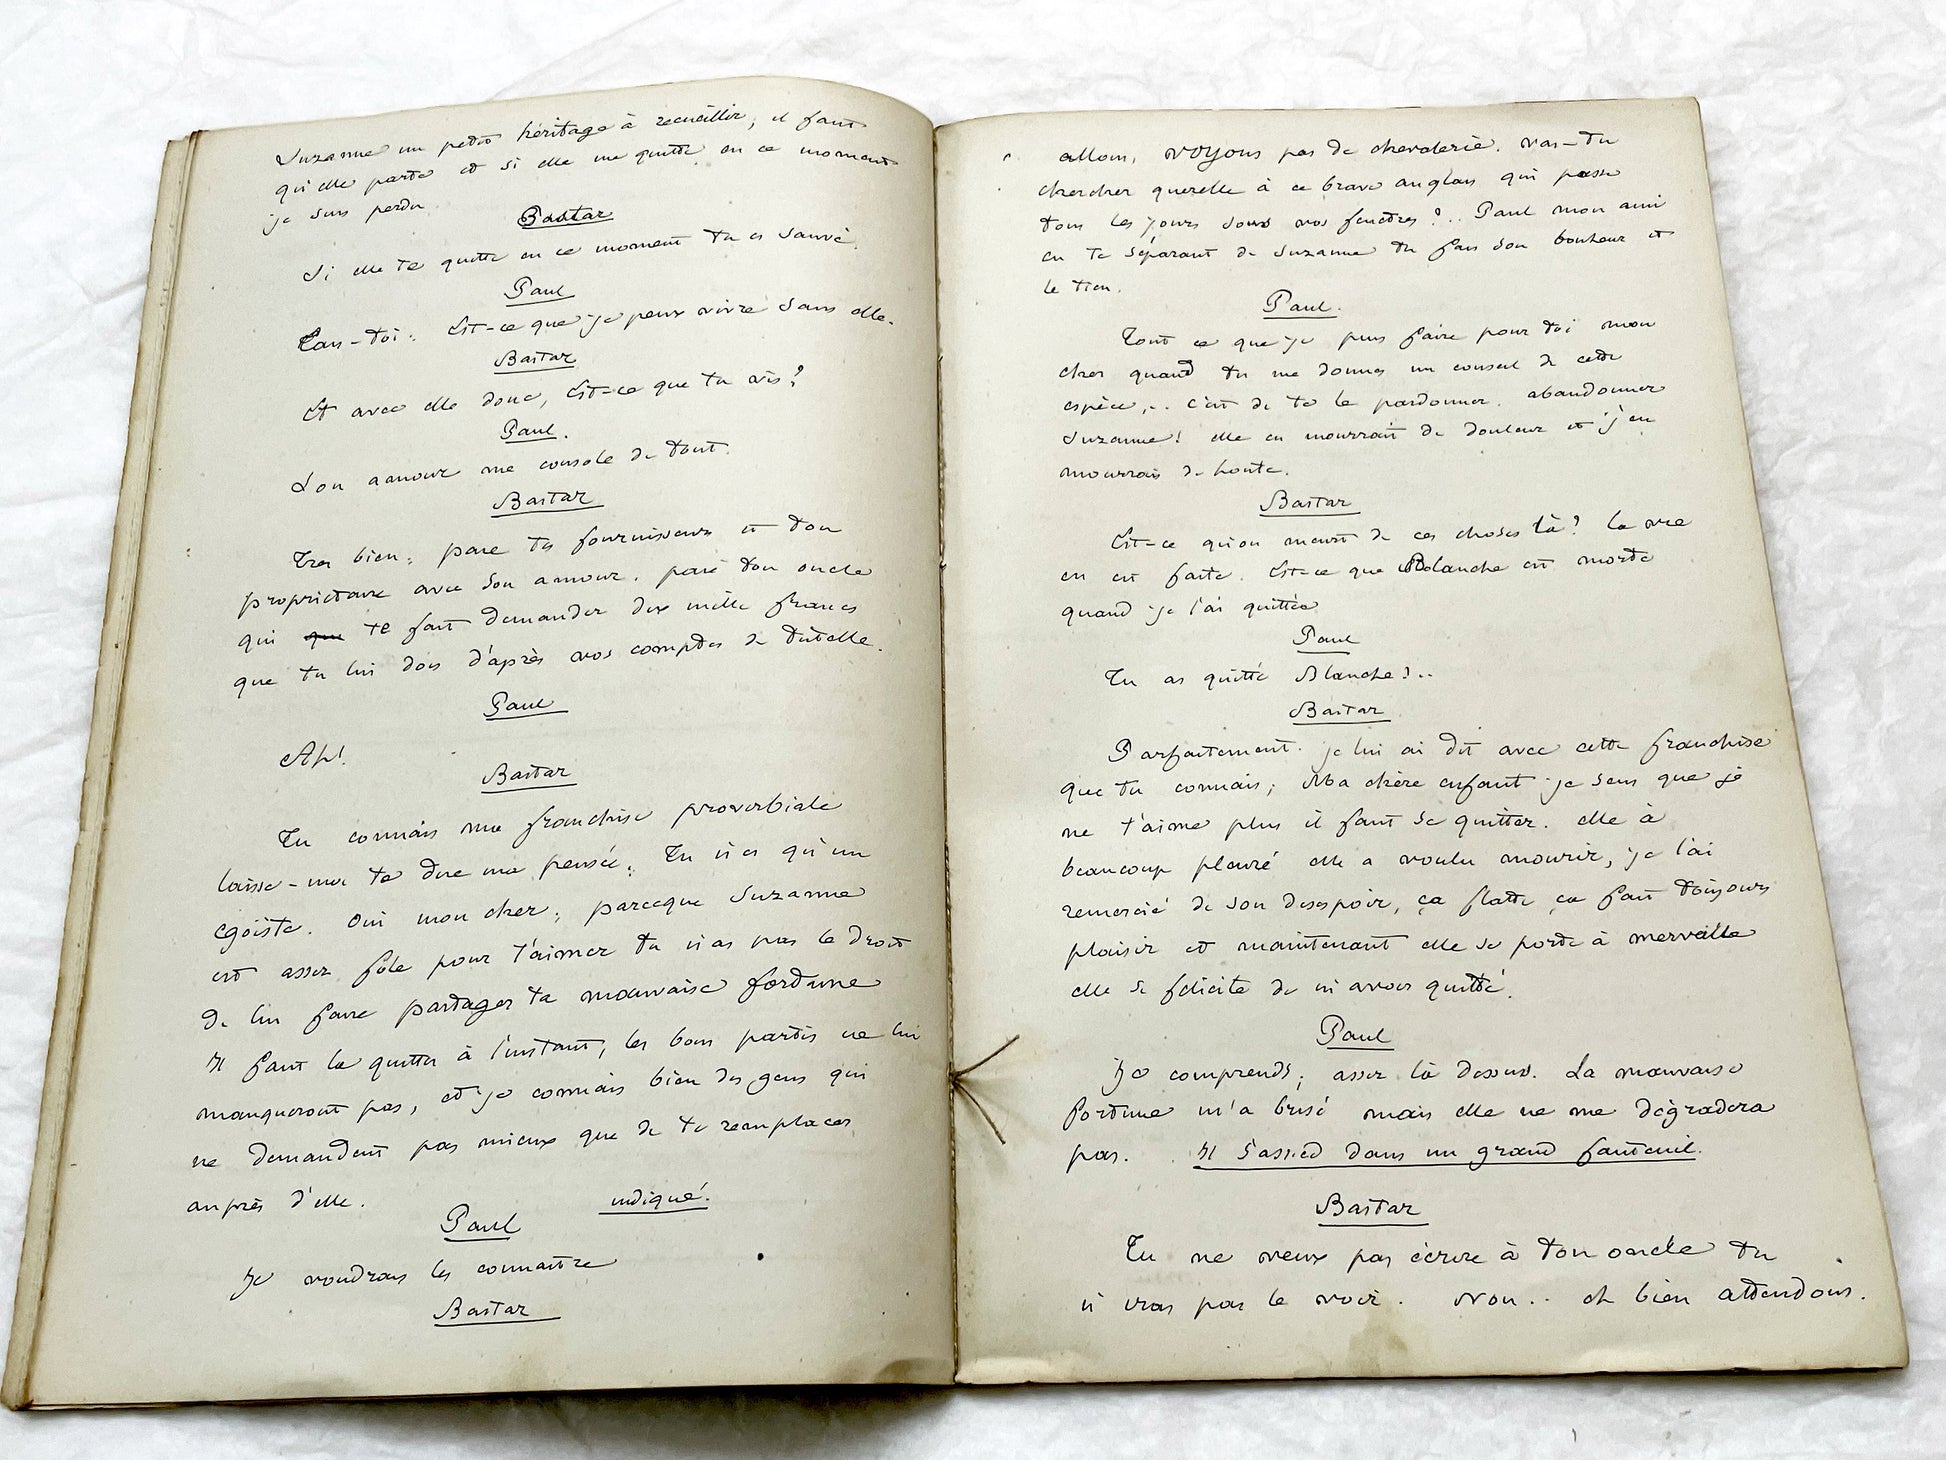 Suzanne un petit héritage à recueillir, il faut
qu'elle parte et si elle me quitte en ce moment
je suis perdu
Bastar
Si elle te quitte en ce moment tu es sauvé.
Paul
Tais-toi. Est-ce que je peux vivre sans elle.
Bastar
Et avec elle donc, Est-ce que tu vis?
Paul.
Son amour me console de tout.
Bastar
Tres bien, paie tes fournisseurs et ton
proprietaire avec son amour. paie ton oncle
qui que te fait demander dix mille francs
que tu lui dois d'après vos comptes de tutelle.
Paul
Ah!
Bastar
Tu connais ma franchise proverbiale
laisse-moi te dire ma pensée. Tu n'es qu'un
égoïste. Oui mon cher, parceque Suzanne
est assez fole pour t'aimer tu n'as pas le droit
de lui faire partager ta mauvaise fortune
Il faut la quitter à l'instant, les bons partis ne lui
manqueront pas, et je connais bien des gens qui
ne demandent pas mieux que de te remplacer
auprès d'elle.
Paul indiqué.
Je voudrais les connaitre
Bastar
allons, voyons pas de chevalerie. vas-tu
chercher querelle à ce brave anglais qui passe
tous les jours sous vos fenetres?.. Paul mon ami
en te séparant de Suzanne tu fais son bonheur et
le tien.
Paul.
Tout ce que je puis faire pour toi mon
cher quand tu me donnes un conseil de cette
espèce,.. c'est de te le pardonner. abandonner
Suzanne! elle en mourrait de douleur et j'en
mourrais de honte.
Bastar
Est-ce qu'on meurt de ces choses là? la vie
en est faite. Est-ce que Blanche est morte
quand je l'ai quittée
Paul
Tu as quitté Blanche?..
Bastar
Parfaitement. je lui ai dit avec cette franchise
que tu connais; Ma chère enfant je sens que je
ne t'aime plus il faut se quitter. elle à
beaucoup pleuré elle a voulu mourir, je l'ai
remercié de son desespoir, ça flatte ça fait toujours
plaisir et maintenant elle se porte à merveille
elle se felicite de m'avoir quitté.
Paul
Je comprends; assez là dessus. La mauvaise
fortune m'a brisé mais elle ne me dégradera
pas. Il s'assied dans un grand fauteuil.
Bastar
Tu ne veux pas écrire à ton oncle tu
n'iras pas le voir. Non.. eh bien attendons.